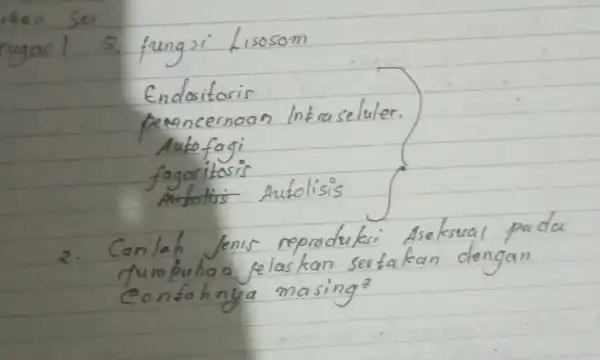 Sel
Tugas 1 5. fungsi Lisosom
Endositosis
pencernaan Intraseluler.
Autofagi
fagositosis
Autolisis Autolisis
2. Carilah Jenis reproduksi Aseksual pada
tumbuhan jelaskan sertakan dengan
Contohnya masing²